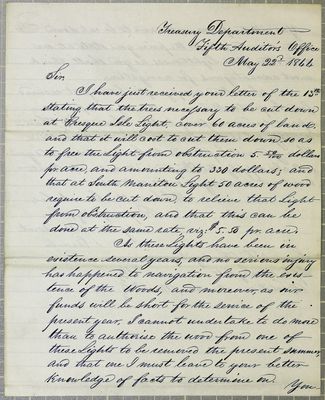 Treasury Department
Fifth Auditors Office
May 22d 1844
Sir,
I have just received your letter of the 13th
stating that the trees necessary to be cut down
at Presque Isle Light, cover 60 acres of land,
and that it will cost to cut them down so as
to free the Light from obstruction 5 50/100 dollars
pr acre, and amounting to 330 dollars; and
that at South Manitou Light 50 acres of wood
require to be cut down, to relieve that Light
from obstruction, and that this can be
done at the same rate, viz: $5.50 pr. acre.
As these Lights have been in
existence several years, and no serious injury
has happened to navigation from the exis-
tence of the Woods, and moreover, as our
funds will be short for the service of the
present year, I cannot undertake to do more
than to authorise the wood from one of
these Lights to be removed the present summer,
and that one I must leave to your better
knowledge of facts to determine on.
You